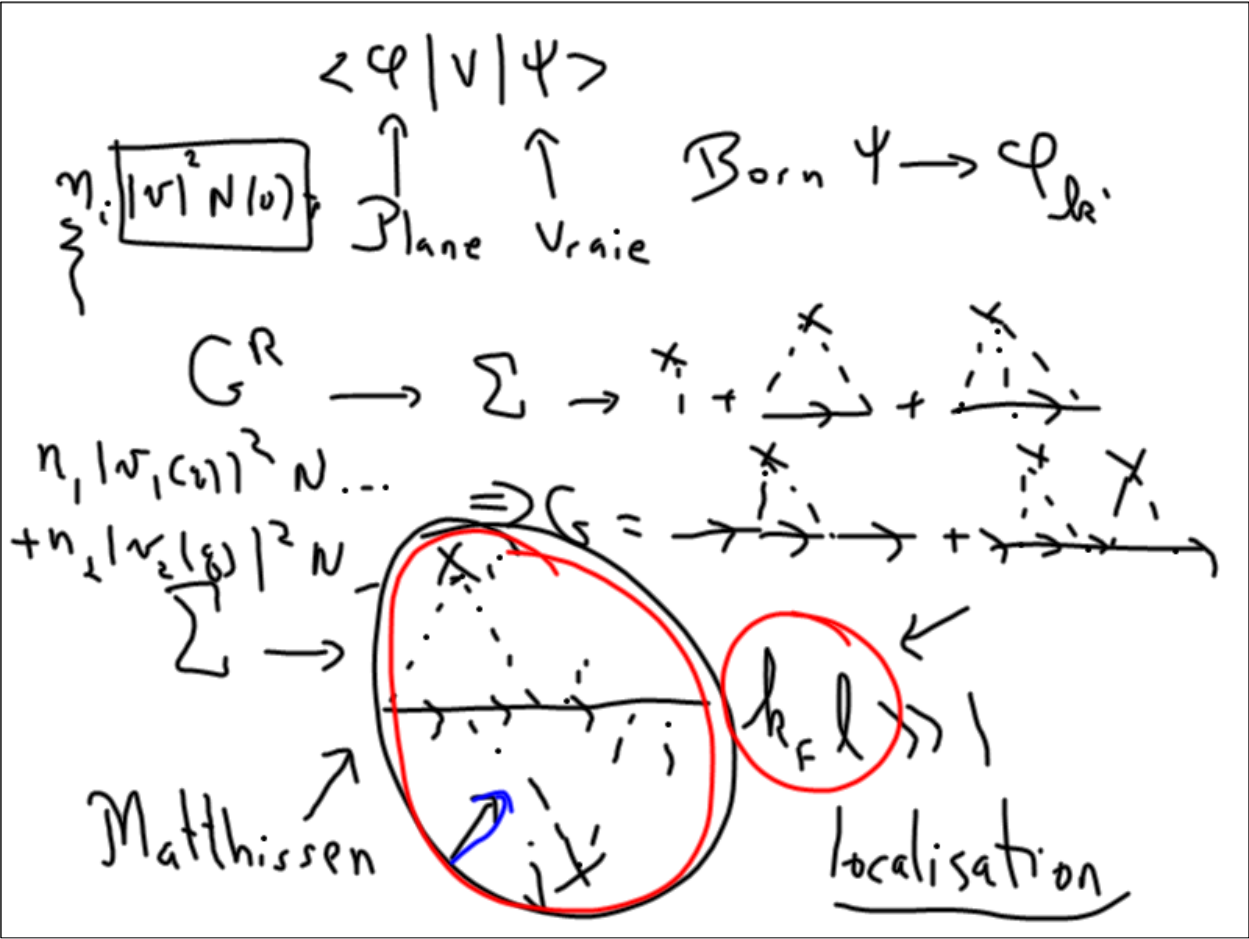 <φ|V|ψ>
n_i |v|² N(0)
Plane Vraie
Born ψ → φ_k
G^R → Σ → + +
n_1 |v_1(q)|² N ...
⇒ G = +
+n_2 |v_2(q)|² N
Σ →
k_F l >> 1
Matthissen
localisation